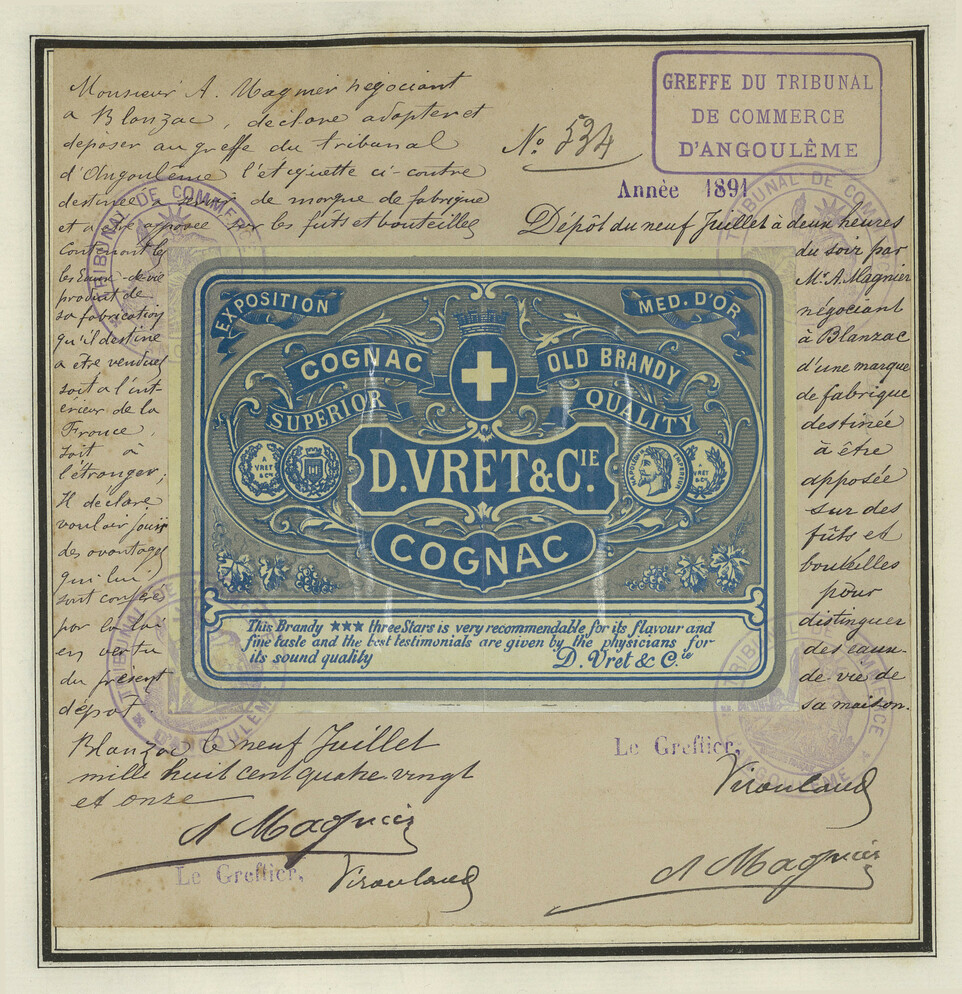 Monsieur A. Magnier négociant
a Blanzac, declare adopter et
déposer au greffe du tribunal
d'Angoulême l'étiquette ci-contre
destinée a servir de marque de fabrique
et a être apposée sur les fûts et bouteilles
contenant les
les Eaux-de-vie
produit de
sa fabrication
qu'il destine
a etre vendues
soit a l'int-
erieur de la
France,
soit a
l'étranger;
Il declare
vouloir jouir
des avantages
qui lui
sont conférés
par la loi
en vertu
du présent
dépot.
Blanzac le neuf Juillet
mille huit cent quatre-vingt
et onze
A Magnier
Le Greffier,
GREFFE DU TRIBUNAL
DE COMMERCE
D'ANGOULÊME
No 534
Année 1891
Dépôt du neuf Juillet à deux heures
du soir par
Mr. A. Magnier
négociant
à Blanzac
d'une marque
de fabrique
destinée
à être
apposée
sur des
fûts et
bouteilles
pour
distinguer
des eaux-
de-vie de
sa maison.
Le Greffier,
A Magnier
TRIBUNAL DE COMMERCE
D'ANGOULÊME
TRIBUNAL DE COM
TRIBUNAL DE
D'ANGOULÊME
TRIBUNAL DE COMMERCE
ANGOULÊME
EXPOSITION
MED. D'OR
COGNAC
OLD BRANDY
SUPERIOR
QUALITY
A
VRET
& Cº
NAPOLEON III EMPEREUR
A
VRET
& Cº
D. VRET & CIE.
COGNAC
This Brandy ★★★ three Stars is very recommendable for its flavour and
fine taste and the best testimonials are given by the physicians for
its sound quality
D. Vret & Cie